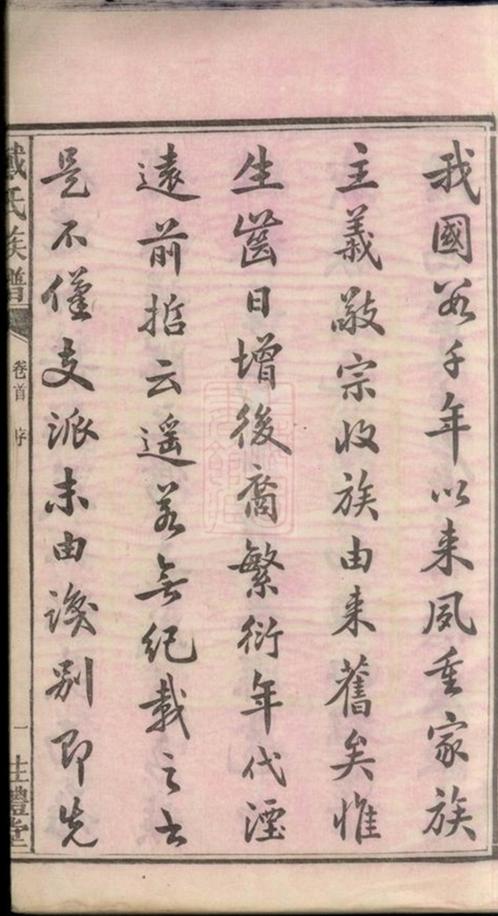 我國數千年以来夙重家族
主義敬宗收族由来舊矣惟
生齒日增後裔繁衍年代湮
遠前哲云遥若無紀載之書
是不僅支派未由識別即先
戴氏族譜
卷首 序
一
禮堂